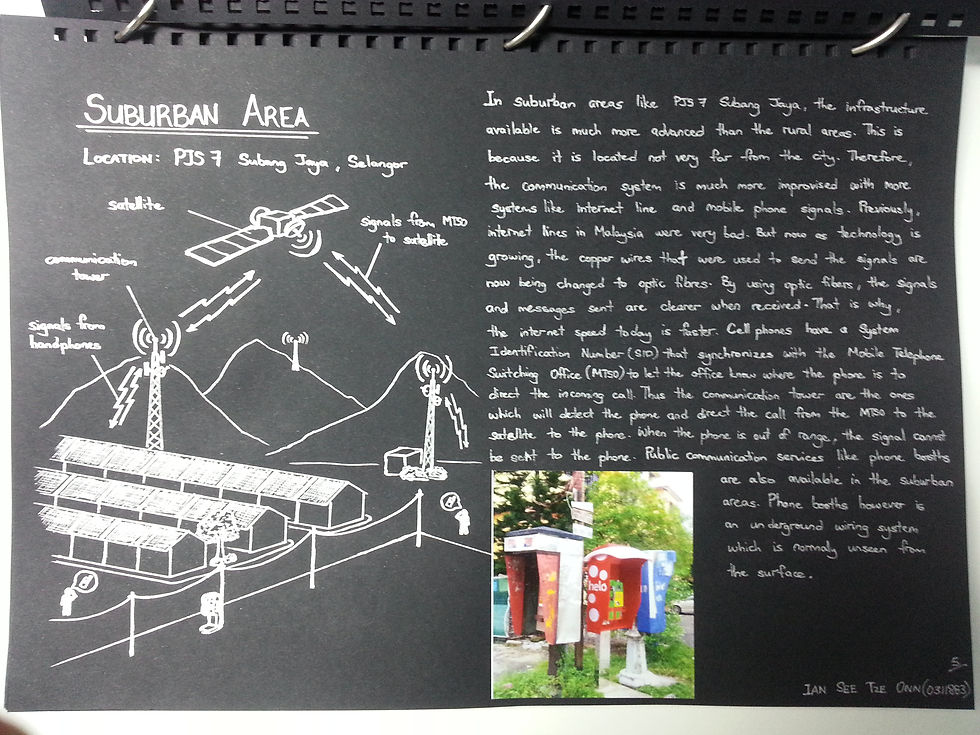 SUBURBAN AREA
LOCATION: PJS 7 Subang Jaya, Selangor
satellite
signals from MTSO
to satellite
communication
tower
signals from
handphones
In suburban areas like PJS 7 Subang Jaya, the infrastructure
available is much more advanced than the rural areas. This is
because it is located not very far from the city. Therefore,
the communication system is much more improvised with more
systems like internet line and mobile phone signals. Previously,
internet lines in Malaysia were very bad. But now as technology is
growing, the copper wires that were used to send the signals are
now being changed to optic fibres. By using optic fibers, the signals
and messages sent are clearer when received. That is why,
the internet speed today is faster. Cell phones have a System
Identification Number (SID) that synchronizes with the Mobile Telephone
Switching Office (MTSO) to let the office know where the phone is to
direct the incoming call. Thus the communication tower are the ones
which will detect the phone and direct the call from the MTSO to the
satellite to the phone. When the phone is out of range, the signal cannot
be sent to the phone. Public communication services like phone booths
are also available in the suburban
areas. Phone booths however is
an underground wiring system
which is normaly unseen from
the surface.
helo
5.
IAN SEE TZE ONN (0311863)